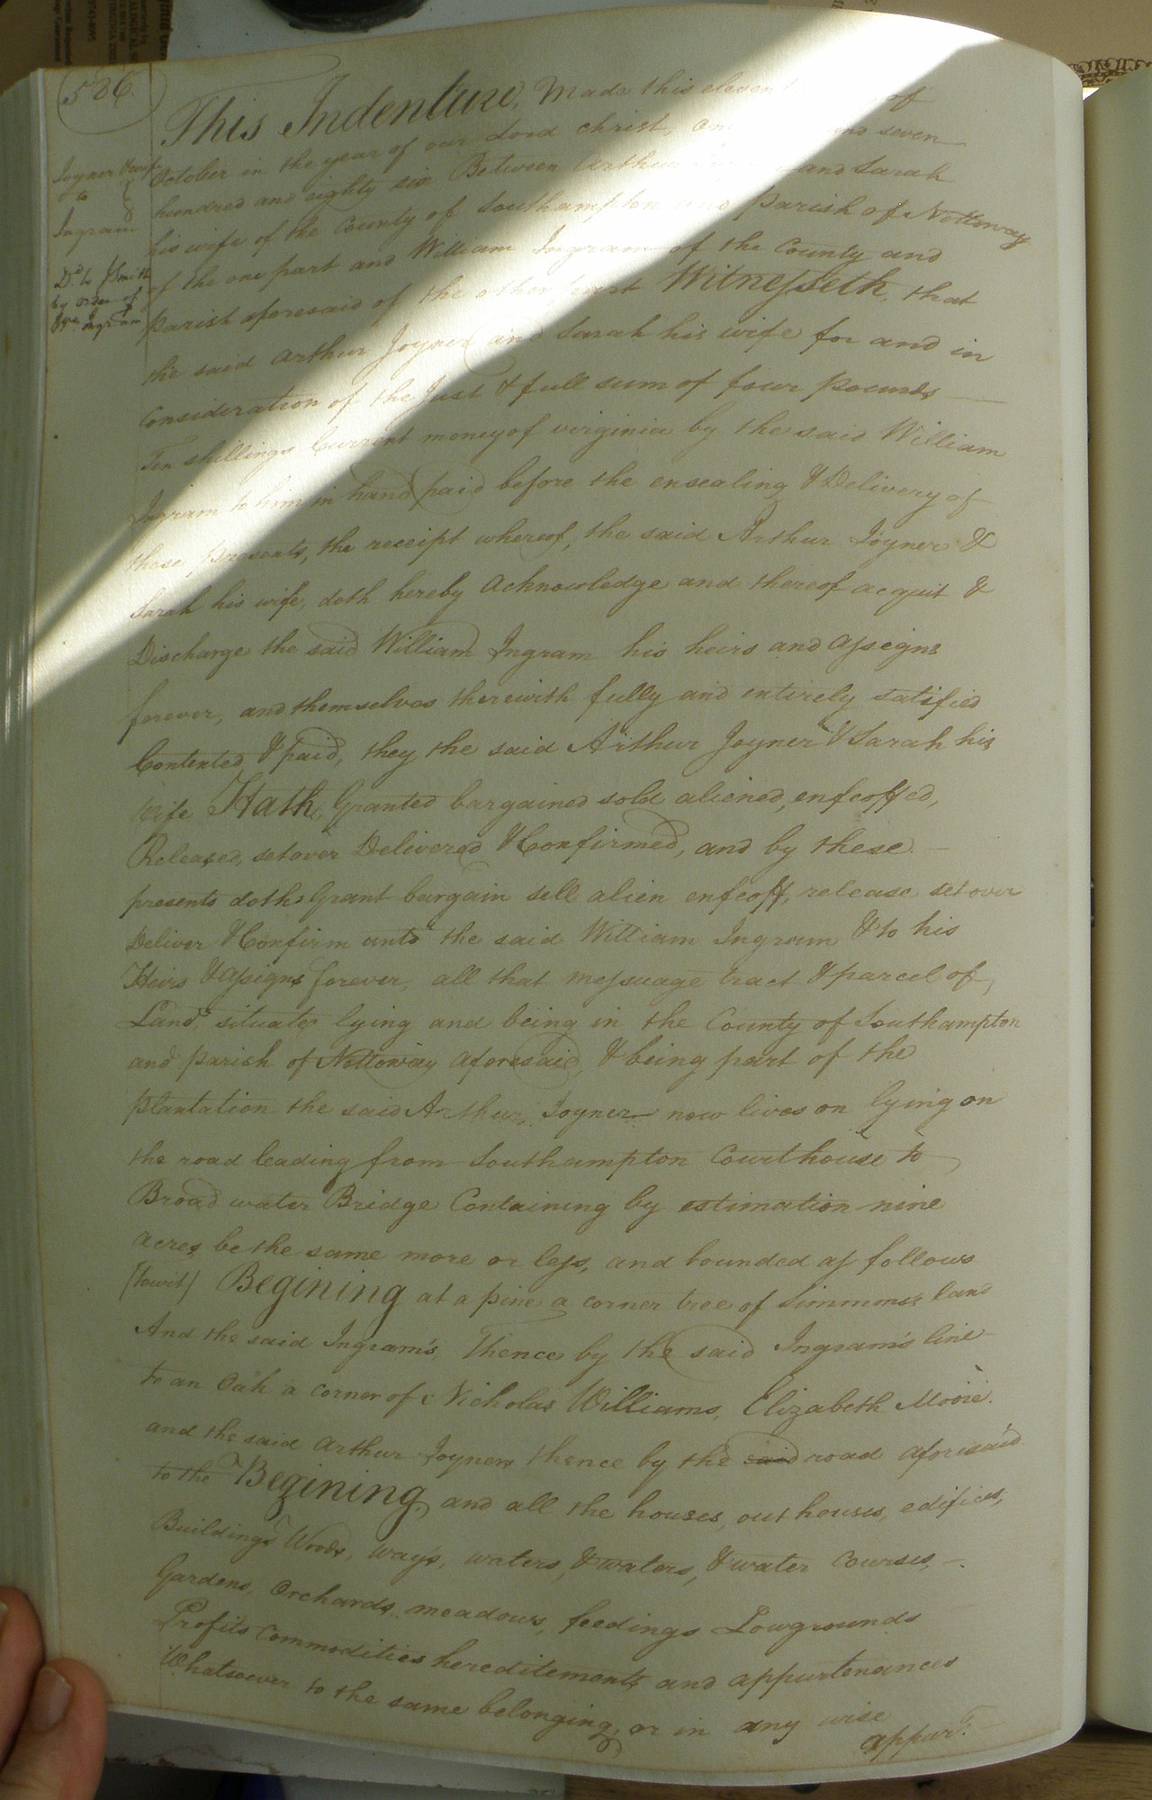 586
Joyner &wife
to
Ingram
Dd. to J Smith
by order of
Wm Ingram
This Indenture, Made this eleventh of
October in the year of our Lord christ, one seven
hundred and eighty six Between Arthur and Sarah
his wife of the County of Southampton and Parish of Nottoway
of the one part and William Ingram of the County and
Parish aforesaid of the other part Witnesseth, that
the said Arthur Joyner and Sarah his wife for and in
Consideration of the Just & full sum of four pounds
Ten shillings Current money of virginia by the said William
Ingram to him in hand paid before the ensealing & Delivery of
these presents, the receipt whereof, the said Arthur Joyner &
Sarah his wife, doth hereby Acknowledge and thereof acquit &
Discharge the said William Ingram his heirs and assigns
forever, and themselves therewith fully and entirely satified
Contented & paid, they the said Arthur Joyner & Sarah his
wife Hath, Granted bargained sold aliened, enfeoffed,
Released, setover Delivered & Confirmed, and by these
presents doth Grant bargain sell alien enfeoff, release set over
Deliver & Confirm unto the said William Ingram & to his
Heirs & assigns forever, all that messuage tract & parcel of
Land, situate lying and being in the County of Southampton
and parish of Nottoway aforesaid, & being part of the
Plantation the said Arthur Joyner now lives on lying on
the road leading from Southampton Courthouse to
Broad water Bridge Containing by estimation nine
acres be the same more or less, and bounded as follows
(towit) Begining at a pine a corner tree of Simmons's land
And the said Ingram's, Thence by the said Ingram's line
to an Oak a corner of Nicholas Williams, Elizabeth Moore.
and the said Arthur Joyners thence by the said road aforesaid
to the Begining, and all the houses, out houses, edifices,
Buildings Woods, ways, waters, & waters, & water courses,
Gardens, Orchards, meadows, feedings Lowgrounds
Profits Commodities hereditements and appurtenances
Whatsoever to the same belonging, or in any wise
appurt.